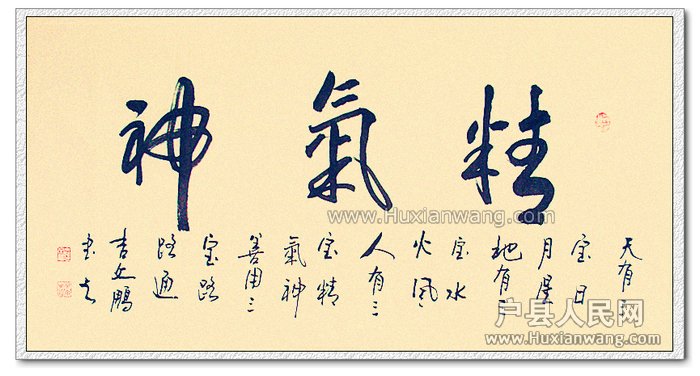 精氣神
www.Huxianwang.com
天有三
宝日
月星
地有三
宝水
火风
人有三
宝精
氣神
善用三
宝路
路通
文鵬
书
户县人民网
Huxianwang.com